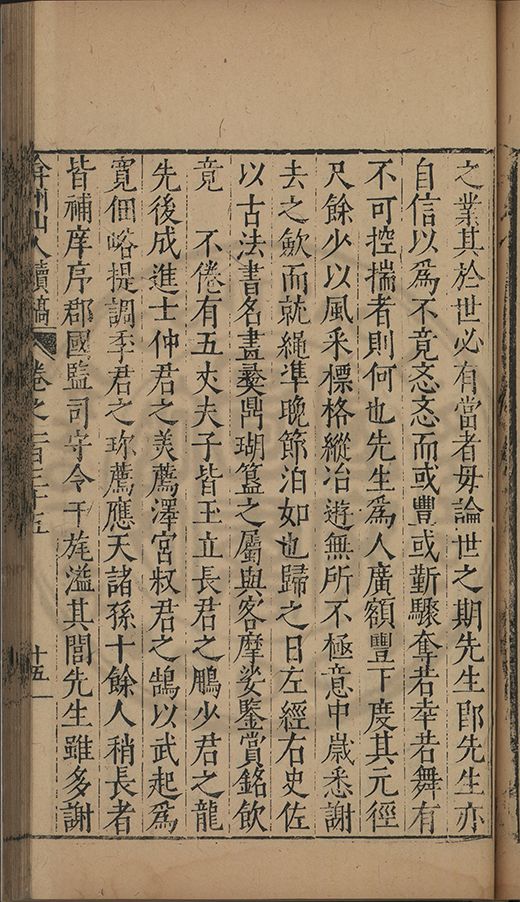 之業其於世必有當者毋論世之期先生卽先生亦
自信以爲不竟忞忞而或豐或靳驟奪若幸若舞有
不可控揣者則何也先生爲人廣額豐下度其元徑
尺餘少以風采標格縱冶遊無所不極意中歲悉謝
去之歛而就繩凖晚節泊如也歸之日左經右史佐
以古法書名畫彛鬲瑚簋之屬與客摩娑鑒賞銘飲
竟 不倦有五丈夫子皆玉立長君之鵬少君之龍
先後成進士仲君之美薦澤宮叔君之鵠以武起爲
寛佃峪提調季君之珎薦應天諸孫十餘人稍長者
皆補庠序郡國監司守令干旄溢其閭先生雖多謝
弇州山人續稿 卷之一百三十五 十五